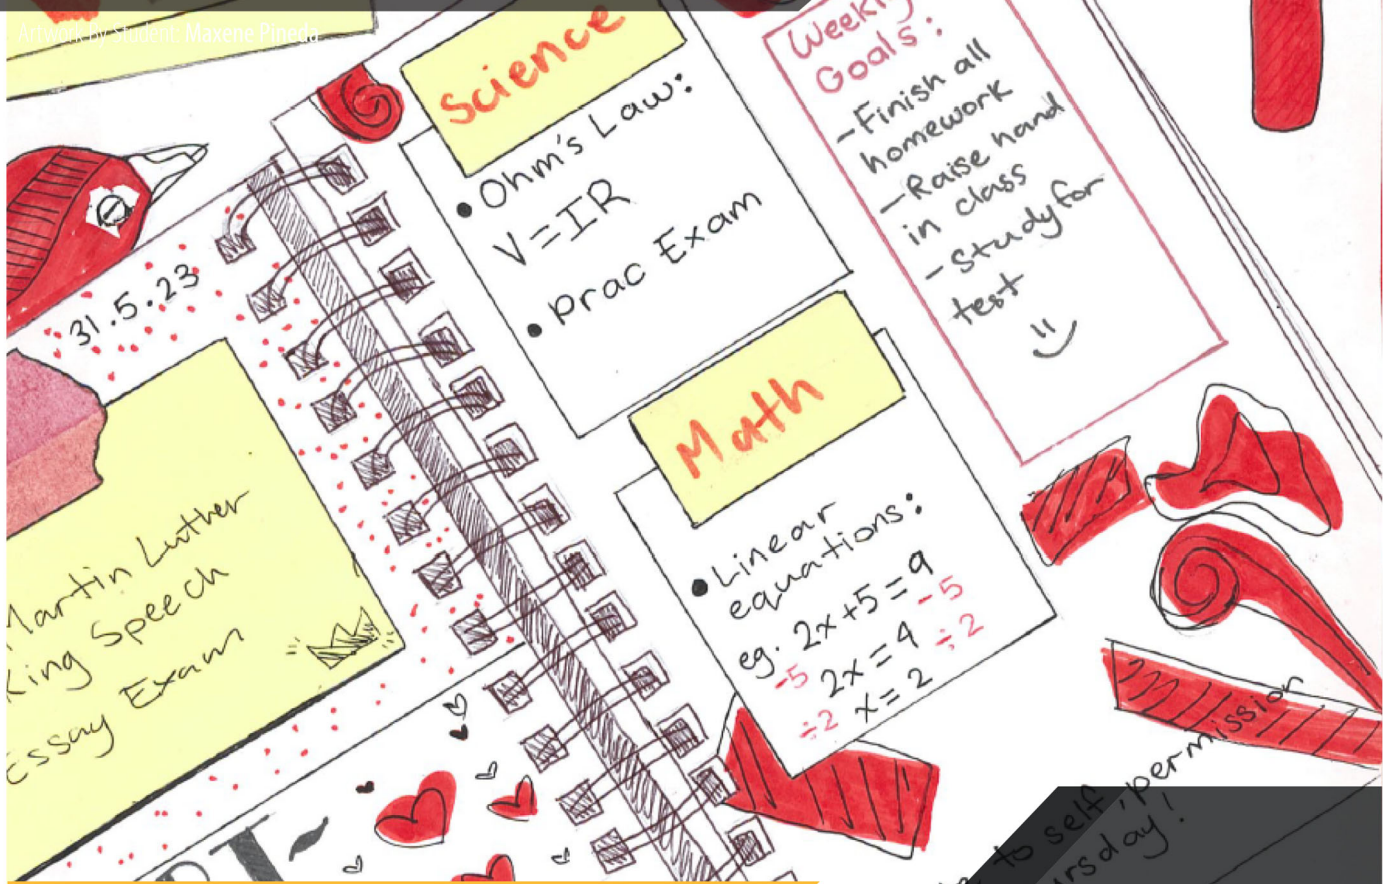 Artwork By Student: Maxene Pineda
31.5.23
Martin Luther
King Speech
Essay Exam
Science
• Ohm's Law:
V=IR
• Prac Exam
Math
• Linear
equations:
eg. 2x+5=9
-5 -5
2x=4
÷2 ÷2
x=2
Weekly
Goals:
-Finish all
homework
-Raise hand
in class
-Study for
test
to self, permission